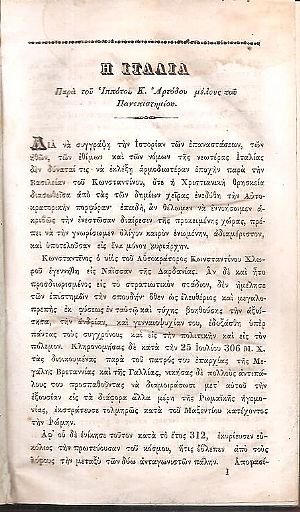 Η ΙΤΑΛΙΑ
Παρὰ τοῦ Ἱππότου Κ. Ἀρτόδου μέλους τοῦ
Πανεπιστημίου.
ΔΙΑ νὰ συγγράψῃ τὴν ἱστορίαν τῶν ἐπαναστάσεων, τῶν
ἠθῶν, τῶν ἐθίμων καὶ τῶν νόμων τῆς νεωτέρας Ἰταλίας
δὲν δύναταί τις νὰ ἐκλέξῃ ἁρμοδιωτέραν ἐποχὴν παρὰ τὴν
Βασιλείαν τοῦ Κωνσταντίνου, ὅτε ἡ Χριστιανικὴ θρησκεία
διασωθεῖσα ἀπὸ τὰς τῶν δημίων χεῖρας ἐνεδύθη τὴν Αὐτο-
κρατορικὴν πορφύραν· ἐπειδὴ, ἂν θέλωμεν νὰ ἐννοήσωμεν ἀ-
κριβῶς τὴν ἐνεστῶσαν διαίρεσιν τῆς προκειμένης χώρας, πρέ-
πει νὰ τὴν γνωρίσωμεν ὀλίγον καιρὸν ἑνωμένην, ἀδιαμέριστον,
καὶ ὑποτελοῦσαν εἰς ἕνα μόνον κυριάρχην.
Κωνσταντῖνος ὁ υἱὸς τοῦ Αὐτοκράτορος Κωνσταντίου Χλω-
ροῦ ἐγεννήθη εἰς Νάϊσσαν τῆς Δαρδανίας. Ἂν δὲ καὶ ἦτο
προσδιωρισμένος εἰς τὸ στρατιωτικὸν στάδιον, δὲν ἠμέλησε
τῶν ἐπιστημῶν τὴν σπουδήν· ὅθεν ὡς ἐλευθέριος καὶ μεγαλο-
πρεπὴς ἐκ φύσεως ἐνταὐτῷ καὶ τύχης βοηθούσης τὴν ἀξιό-
τητα, τὴν ἀνδρίαν, καὶ γενναιοψυχίαν του, εὐδοξάσθη ὑπὲρ
πάντας τοὺς συγχρόνους καὶ εἰς τὴν πολιτικὴν καὶ εἰς τὸν
πόλεμον. Κληρονομήσας δὲ κατὰ τὴν 25 Ἰουλίου 306 Μ. Χ.
τὰς διοικουμένας παρὰ τοῦ πατρός του ἐπαρχίας τῆς Με-
γάλης Βρετταννίας καὶ τῆς Γαλλίας, νικήσας δὲ πολλοὺς ἀντιπά-
λους του προσπαθοῦντας νὰ διαμοιράσωσι μετ' αὐτοῦ τὴν
ἐξουσίαν εἰς τὰ διάφορα ἄλλα μέρη τῆς Ῥωμαϊκῆς ἡγεμο-
νίας, ἐκστράτευσε τολμηρῶς κατὰ τοῦ Μαξεντίου κατέχοντος
τὴν Ῥώμην.
Ἀφ' οὗ δὲ ἐνίκησε τοῦτον κατὰ τὸ ἔτος 312, ἐκυρίευσεν εὐ-
κόλως τὴν πρωτεύουσαν τοῦ κόσμου, ἥτις ἔβλεπεν ἀπὸ τοὺς
λόφους τὴν μεταξὺ τῶν δύω ἀνταγωνιστῶν πάλην. Ἀποφασί-
1